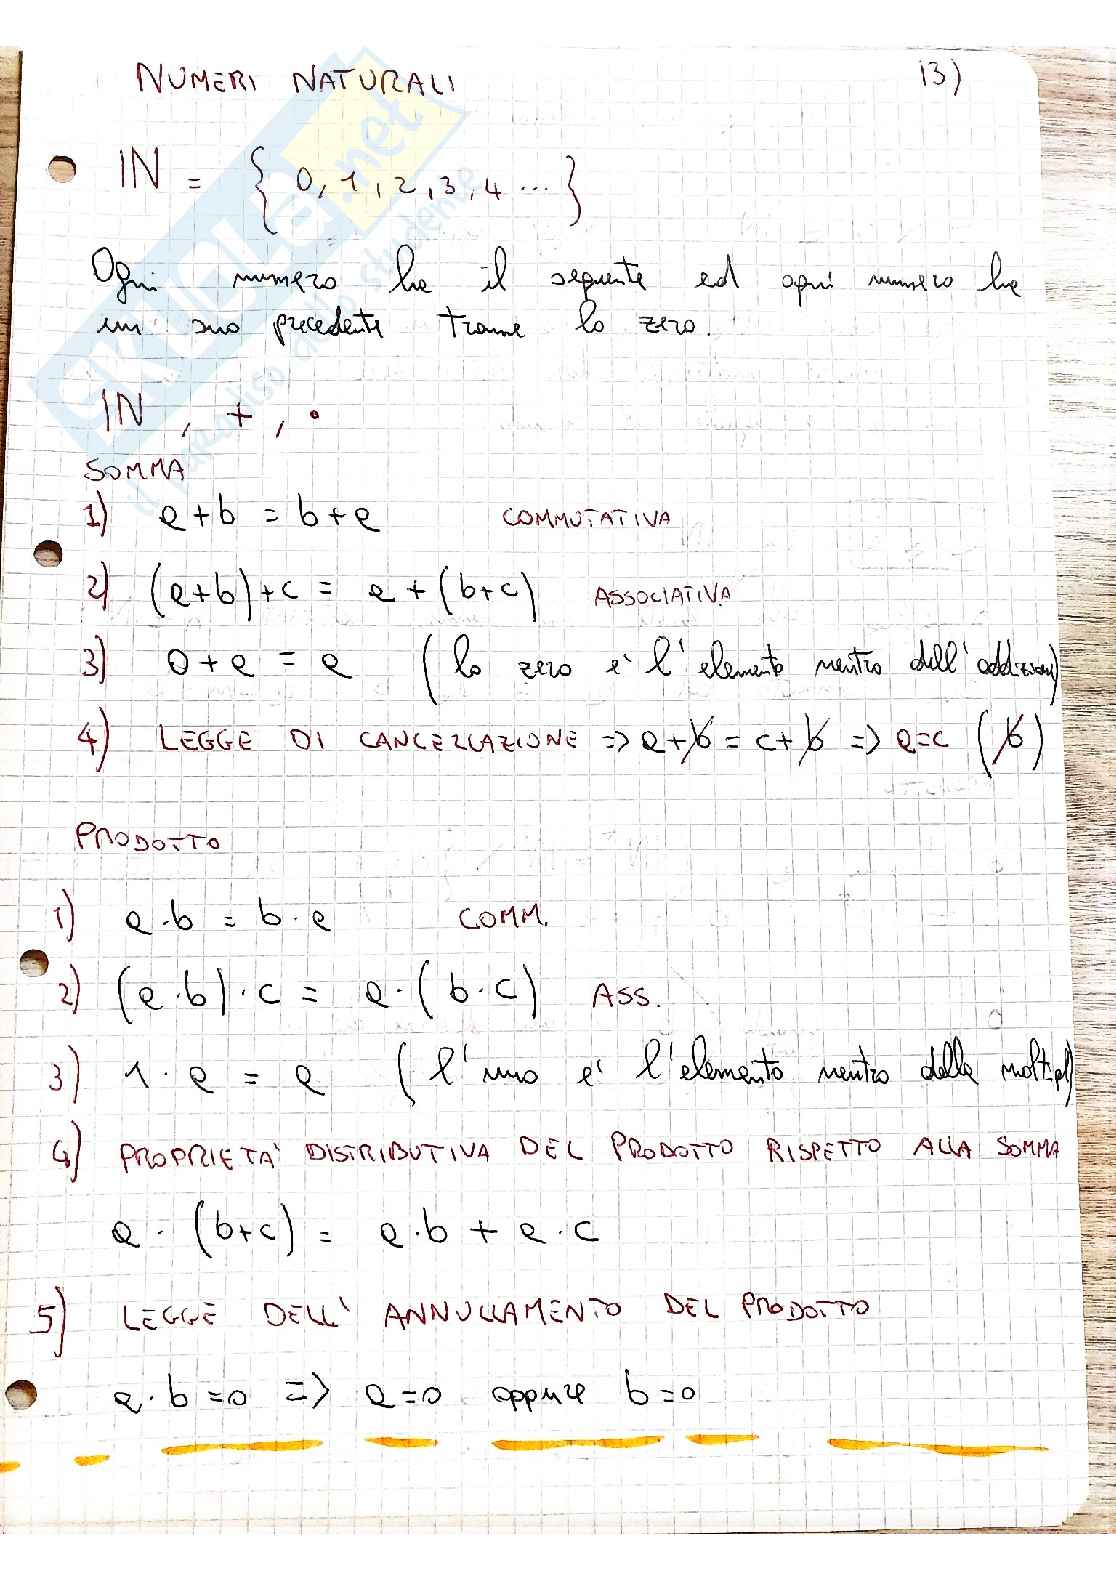 NUMERI NATURALI 13)
IN = { 0, 1, 2, 3, 4 ... }
Ogni numero ha il seguente ed ogni numero ha
un suo precedente tranne lo zero.
IN, +, •
SOMMA
1) a+b = b+a COMMUTATIVA
2) (a+b)+c = a+(b+c) ASSOCIATIVA
3) 0+a = a (lo zero e' l'elemento neutro dell'addizione)
4) LEGGE DI CANCELLAZIONE => a+b = c+b => a=c (b)
PRODOTTO
1) a·b = b·a COMM.
2) (a·b)·c = a·(b·c) ASS.
3) 1·a = a (l'uno e' l'elemento neutro della moltipl)
4) PROPRIETA' DISTRIBUTIVA DEL PRODOTTO RISPETTO ALLA SOMMA
a·(b+c) = a·b + a·c
5) LEGGE DELL' ANNULLAMENTO DEL PRODOTTO
a·b=0 => a=0 oppure b=0
SKUOLA.net
il paradiso dello studente